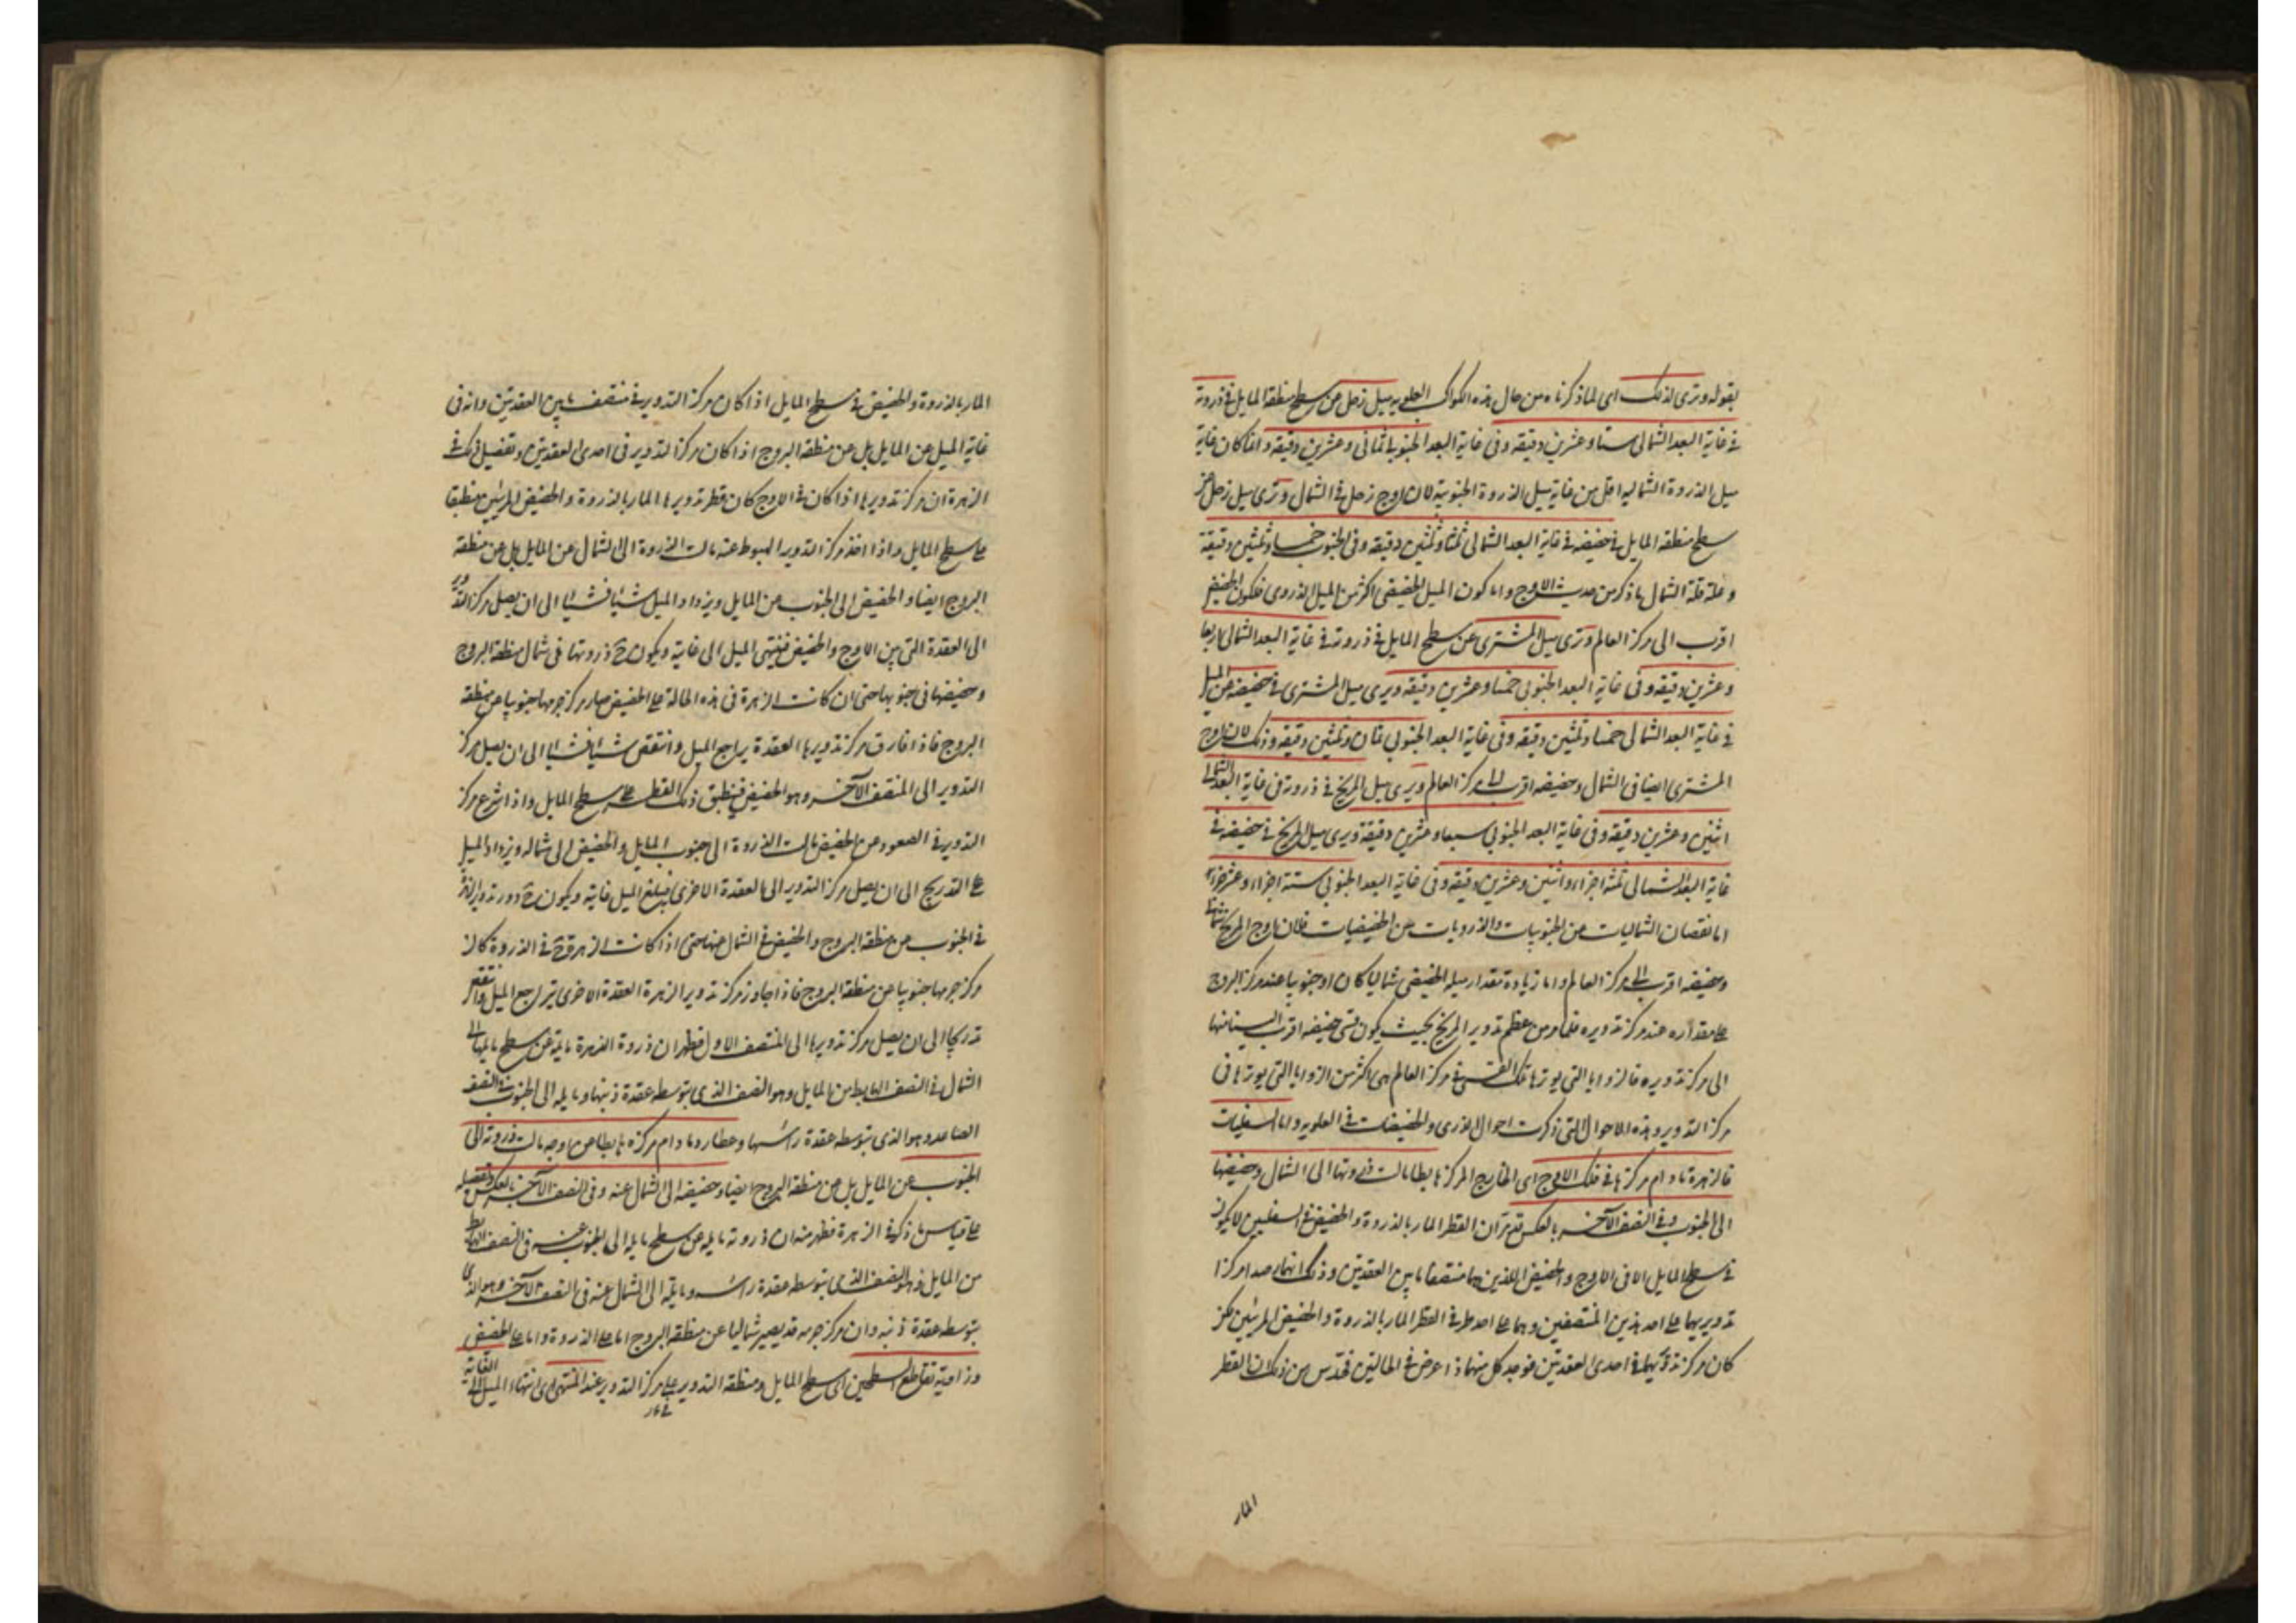 بقوله وترى لذلك اى لما ذكرناه من حال هذه الكواكب العلويه ميل زحل عن سطح منطقة المايل فى ذروته
فى غاية البعد الشمالى ستا وعشرين دقيقه وفى غاية البعد الجنوبى ثمانى وعشرين دقيقه وانما كان غاية
ميل الذروة الشماليه اقل من غاية ميل الذروة الجنوبية لان اوج زحل فى الشمال وترى ميل زحل عن
سطح منطقه المايل فى حضيضه فى غاية البعد الشمالى ثلثا وثلثين دقيقه وفى الجنوب خمسا وثلثين دقيقة
وعلة قلة الشمال ما ذكر من حديث الاوج واما كون الميل الحضيضى اكثر من الميل الذروى فلكون الحضيض
اقرب الى مركز العالم وترى ميل المشترى عن سطح المايل فى ذروته فى غاية البعد الشمالى اربعا
وعشرين دقيقه وفى غاية البعد الجنوبى خمسا وعشرين دقيقه ويرى ميل المشترى فى حضيضه عن الميل
فى غاية البعد الشمالى خمسا وثلثين دقيقه وفى غاية البعد الجنوبى ثمان وثلثين دقيقه وذلك لان اوج
المشترى ايضا فى الشمال وحضيضه اقرب الى مركز العالم ويرى ميل المريخ فى ذروته فى غاية البعد الشمالى
اثنين وعشرين دقيقه وفى غاية البعد الجنوبى سبعا وعشرين دقيقة ويرى ميل المريخ فى حضيضه فى
غاية البعد الشمالى ثلثة اجزاء واثنين وعشرين دقيقه وفى غاية البعد الجنوبى ستة اجزاء وعشر
اما نقصان الشماليات من الجنوبيات والذرويات من الحضيضيات فلان اوج المريخ شمالى
وحضيضه اقرب الى مركز العالم واما زيادة مقدار ميله الحضيضى شماليا كان او جنوبيا عند مركز البروج
على مقداره عند مركز تدويره فلما مر من عظم تدوير المريخ بحيث يكون قسى حضيضه اقرب الينا منها
الى مركز تدويره فالزوايا التى يوترها تلك القسى فى مركز العالم هى اكثر من الزوايا التى يوترها فى
مركز التدوير وهذه الاحوال التى ذكرت احوال الذرى والحضيضات فى العلويه واما السفليات
فالزهرة ما دام مركزها فى فلك الاوج اى الخارج المركز هابطا مالت ذروتها الى الشمال وحضيضها
الى الجنوب وفى النصف الآخر بالعكس قد مر ان القطر المار بالذروة والحضيض فى السفليين لا يكون
فى سطح المايل الا فى الاوج والحضيض اللذين هما منتصفا ما بين العقدتين وذلك انهما رصدا مركزا
تدويريهما على احد هذين المنتصفين وهما على احد طرفى القطر المار بالذروة والحضيض المرئيين
كان مركز تدويريهما فى احدى العقدتين فوجد كل منهما ذا عرض فى الحالتين فحدس من ذلك ان القطر
المار
المار بالذروة والحضيض فى سطح المايل اذا كان مركز التدوير فى منتصف ما بين العقدتين وانه فى
غاية الميل عن المايل بل عن منطقة البروج اذا كان مركز التدوير فى احدى العقدتين وتفصيل ذلك فى
الزهرة ان مركز تدويرها اذا كان فى الاوج كان قطر تدويرها المار بالذروة والحضيض المرئيين منطبقا
على سطح المايل واذا اخذ مركز التدوير الهبوط عنه مالت الذروة الى الشمال عن المايل بل عن منطقة
البروج ايضا والحضيض الى الجنوب عن المايل ويزداد الميل شيئا فشيئا الى ان يصل مركز التدوير
الى العقدة التى بين الاوج والحضيض فينتهى الميل الى غايته ويكون ح ذروتها فى شمال منطقة البروج
وحضيضها فى جنوبها حتى ان كانت الزهرة فى هذه الحالة على الحضيض صار مركز جرمها جنوبيا عن منطقة
البروج فاذا فارق مركز تدويرها العقدة يراجع الميل وانتقص شيئا فشيئا الى ان يصل مركز
التدوير الى المنتصف الآخر وهو الحضيض فينطبق ذلك القطر على سطح المايل واذا شرع مركز
التدوير فى الصعود عن الحضيض مالت الذروة الى جنوب المايل والحضيض الى شماله ويزداد الميل
على التدريج الى ان يصل مركز التدوير الى العقدة الاخرى فيبلغ الميل غايته ويكون ح
فى الجنوب عن منطقة البروج والحضيض فى الشمال عنها حتى اذا كانت الزهرة ح فى الذروة كان
مركز جرمها جنوبيا عن منطقة البروج فاذا جاوز مركز تدوير الزهرة العقدة الاخرى تراجع الميل وانتقص
تدريجا الى ان يصل مركز تدويرها الى المنتصف الاول فظهر ان ذروة الزهرة مايلة عن سطح مايلها الى
الشمال فى النصف الهابط من المايل وهو النصف الذى يتوسطه عقدة ذنبها ومايله الى الجنوب فى النصف
الصاعد وهو الذى يتوسطه عقدة راسها وعطارد ما دام مركزه هابطا من اوجه مالت ذروته الى
الجنوب عن المايل بل عن منطقة البروج ايضا وحضيضه الى الشمال عنه وفى النصف الآخر بالعكس وتفصيله
على قياس ما ذكر فى الزهرة فظهر منه ان ذروته مايله عن سطح مايله الى الجنوب عنه فى النصف الهابط
من المايل وهو النصف الذى يتوسطه عقدة راسه ومايلة الى الشمال عنه فى النصف الآخر وهو الذى
يتوسطه عقدة ذنبه وان مركز جرمه قد يصير شماليا عن منطقة البروج اما على الذروة واما على الحضيض
وزاوية تقاطع السطحين اى سطح المايل ومنطقة التدوير على مركز التدوير عند المنتهى اى انتهاء الميل الى الغاية